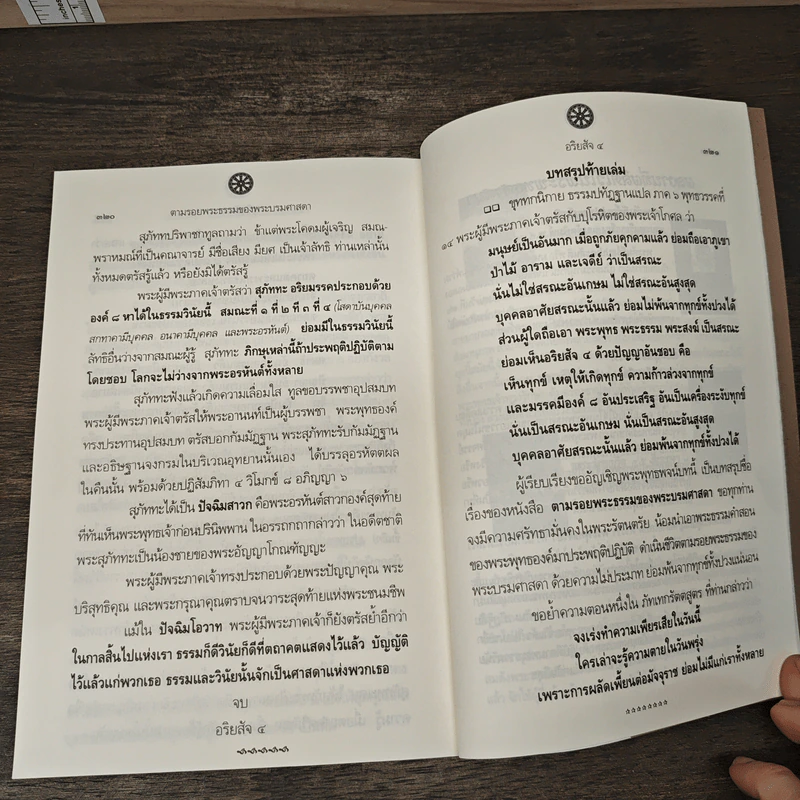 inches
1
๓๒๐
ตามรอยพระธรรมของพระบรมศาสดา
สุภัททปริพาชกทูลถามว่า ข้าแต่พระโคดมผู้เจริญ สมณ-
พราหมณ์ที่เป็นคณาจารย์ มีชื่อเสียง มียศ เป็นเจ้าลัทธิ ท่านเหล่านั้น
ทั้งหมดตรัสรู้แล้ว หรือยังมิได้ตรัสรู้
พระผู้มีพระภาคเจ้าตรัสว่า สุภัททะ อริยมรรคประกอบด้วย
องค์ ๘ หาได้ในธรรมวินัยนี้ สมณะที่ ๑ ที่ ๒ ที่ ๓ ที่ ๔ (โสดาบันบุคคล
สกทาคามีบุคคล อนาคามีบุคคล และพระอรหันต์) ย่อมมีในธรรมวินัยนี้
ลัทธิอื่นว่างจากสมณะผู้รู้ สุภัททะ ภิกษุเหล่านี้ถ้าประพฤติปฏิบัติตาม
โดยชอบ โลกจะไม่ว่างจากพระอรหันต์ทั้งหลาย
สุภัททะฟังแล้วเกิดความเลื่อมใส ทูลขอบรรพชาอุปสมบท
พระผู้มีพระภาคเจ้าตรัสให้พระอานนท์เป็นผู้บรรพชา พระพุทธองค์
ทรงประทานอุปสมบท ตรัสบอกกัมมัฏฐาน พระสุภัททะรับกัมมัฏฐาน
และอธิษฐานจงกรมในบริเวณอุทยานนั้นเอง ได้บรรลุอรหัตตผล
ในคืนนั้น พร้อมด้วยปฏิสัมภิทา ๔ วิโมกข์ ๘ อภิญญา ๖
สุภัททะได้เป็น ปัจฉิมสาวก คือพระอรหันต์สาวกองค์สุดท้าย
ที่ทันเห็นพระพุทธเจ้าก่อนปรินิพพาน ในอรรถกถากล่าวว่า ในอดีตชาติ
พระสุภัททะเป็นน้องชายของพระอัญญาโกณฑัญญะ
พระผู้มีพระภาคเจ้าทรงประกอบด้วยพระปัญญาคุณ พระ
บริสุทธิคุณ และพระกรุณาคุณตราบจนวาระสุดท้ายแห่งพระชนมชีพ
แม้ใน ปัจฉิมโอวาท พระผู้มีพระภาคเจ้าก็ยังตรัสย้ำอีกว่า
ในกาลสิ้นไปแห่งเรา ธรรมก็ดีวินัยก็ดีที่ตถาคตแสดงไว้แล้ว บัญญัติ
ไว้แล้วแก่พวกเธอ ธรรมและวินัยนั้นจักเป็นศาสดาแห่งพวกเธอ
จบ
อริยสัจ ๔
อริยสัจ ๔
๓๒๑
บทสรุปท้ายเล่ม
ขุททกนิกาย ธรรมปทัฏฐานแปล ภาค ๖ พุทธวรรคที่
๑๔ พระผู้มีพระภาคเจ้าตรัสกับปุโรหิตของพระเจ้าโกศล ว่า
มนุษย์เป็นอันมาก เมื่อถูกภัยคุกคามแล้ว ย่อมถือเอาภูเขา
ป่าไม้ อาราม และเจดีย์ ว่าเป็นสรณะ
นั่นไม่ใช่สรณะอันเกษม ไม่ใช่สรณะอันสูงสุด
บุคคลอาศัยสรณะนั้นแล้ว ย่อมไม่พ้นจากทุกข์ทั้งปวงได้
ส่วนผู้ใดถือเอา พระพุทธ พระธรรม พระสงฆ์ เป็นสรณะ
ย่อมเห็นอริยสัจ ๔ ด้วยปัญญาอันชอบ คือ
เห็นทุกข์ เหตุให้เกิดทุกข์ ความก้าวล่วงจากทุกข์
และมรรคมีองค์ ๘ อันประเสริฐ อันเป็นเครื่องระงับทุกข์
นั่นเป็นสรณะอันเกษม นั่นเป็นสรณะอันสูงสุด
บุคคลอาศัยสรณะนั้นแล้ว ย่อมพ้นจากทุกข์ทั้งปวงได้
ผู้เรียบเรียงขออัญเชิญพระพุทธพจน์บทนี้ เป็นบทสรุปชื่อ
เรื่องของหนังสือ ตามรอยพระธรรมของพระบรมศาสดา ขอทุกท่าน
จงมีความศรัทธามั่นคงในพระรัตนตรัย น้อมนำเอาพระธรรมคำสอน
ของพระพุทธองค์มาประพฤติปฏิบัติ ดำเนินชีวิตตามรอยพระธรรมของ
พระบรมศาสดา ด้วยความไม่ประมาท ย่อมพ้นจากทุกข์ทั้งปวงแน่นอน
ขอย้ำความตอนหนึ่งใน ภัทเทกรัตตสูตร ที่ท่านกล่าวว่า
จงเร่งทำความเพียรเสียในวันนี้
ใครเล่าจะรู้ความตายในวันพรุ่ง
เพราะการผลัดเพี้ยนต่อมัจจุราช ย่อมไม่มีแก่เราทั้งหลาย